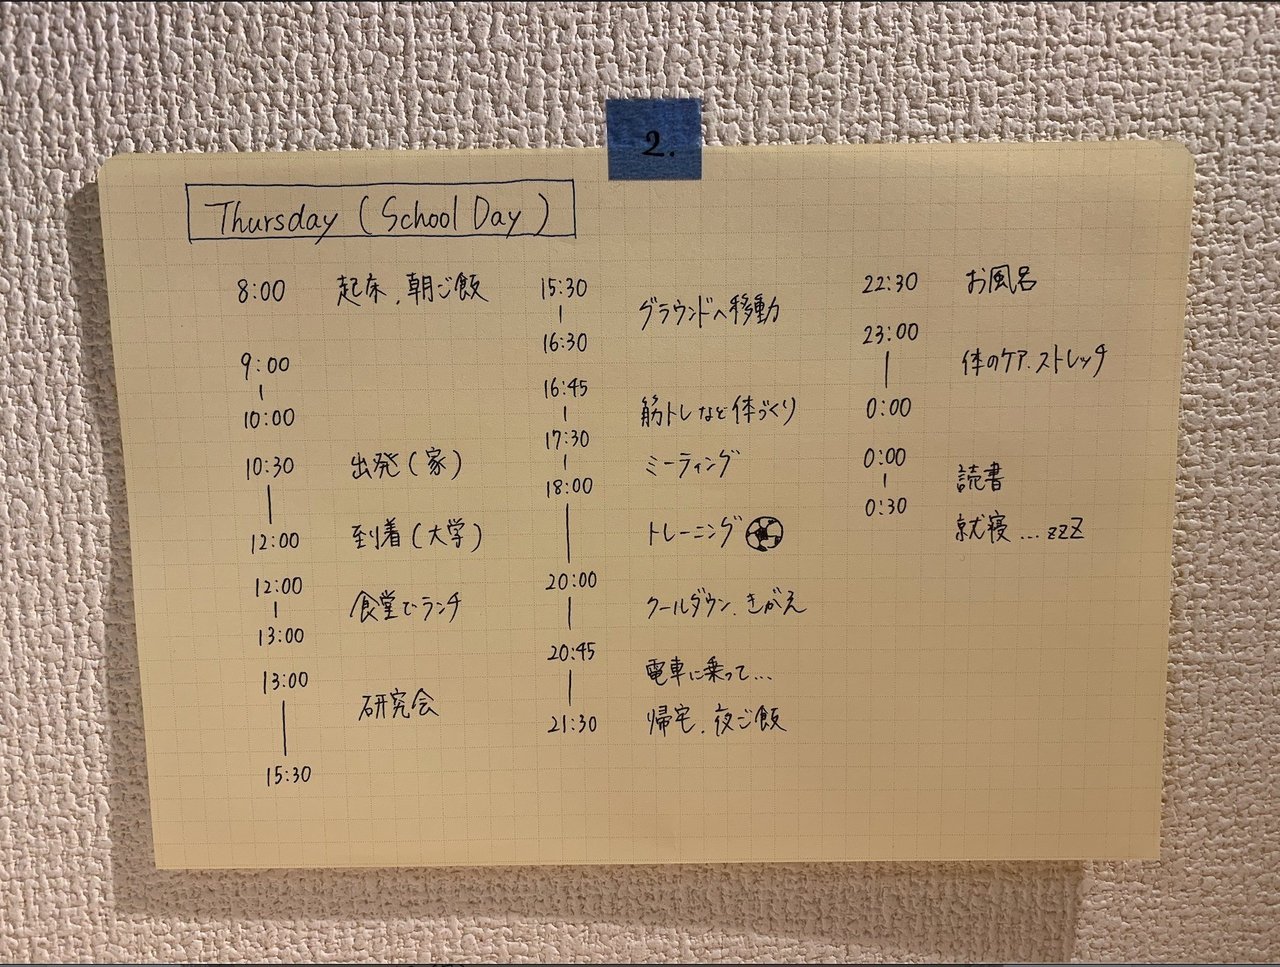 2.
Thursday (School Day)
8:00 起床、朝ご飯
9:00
10:00
10:30 出発(家)
12:00 到着(大学)
12:00
食堂でランチ
13:00
13:00
研究会
15:30
15:30
グラウンドへ移動
16:30
16:45
筋トレなど体づくり
17:30
ミーティング
18:00
トレーニング
20:00
クールダウン、きがえ
20:45
電車に乗って...
21:30 帰宅、夜ご飯
22:30 お風呂
23:00
体のケア、ストレッチ
0:00
0:00
読書
0:30
就寝...zzZ